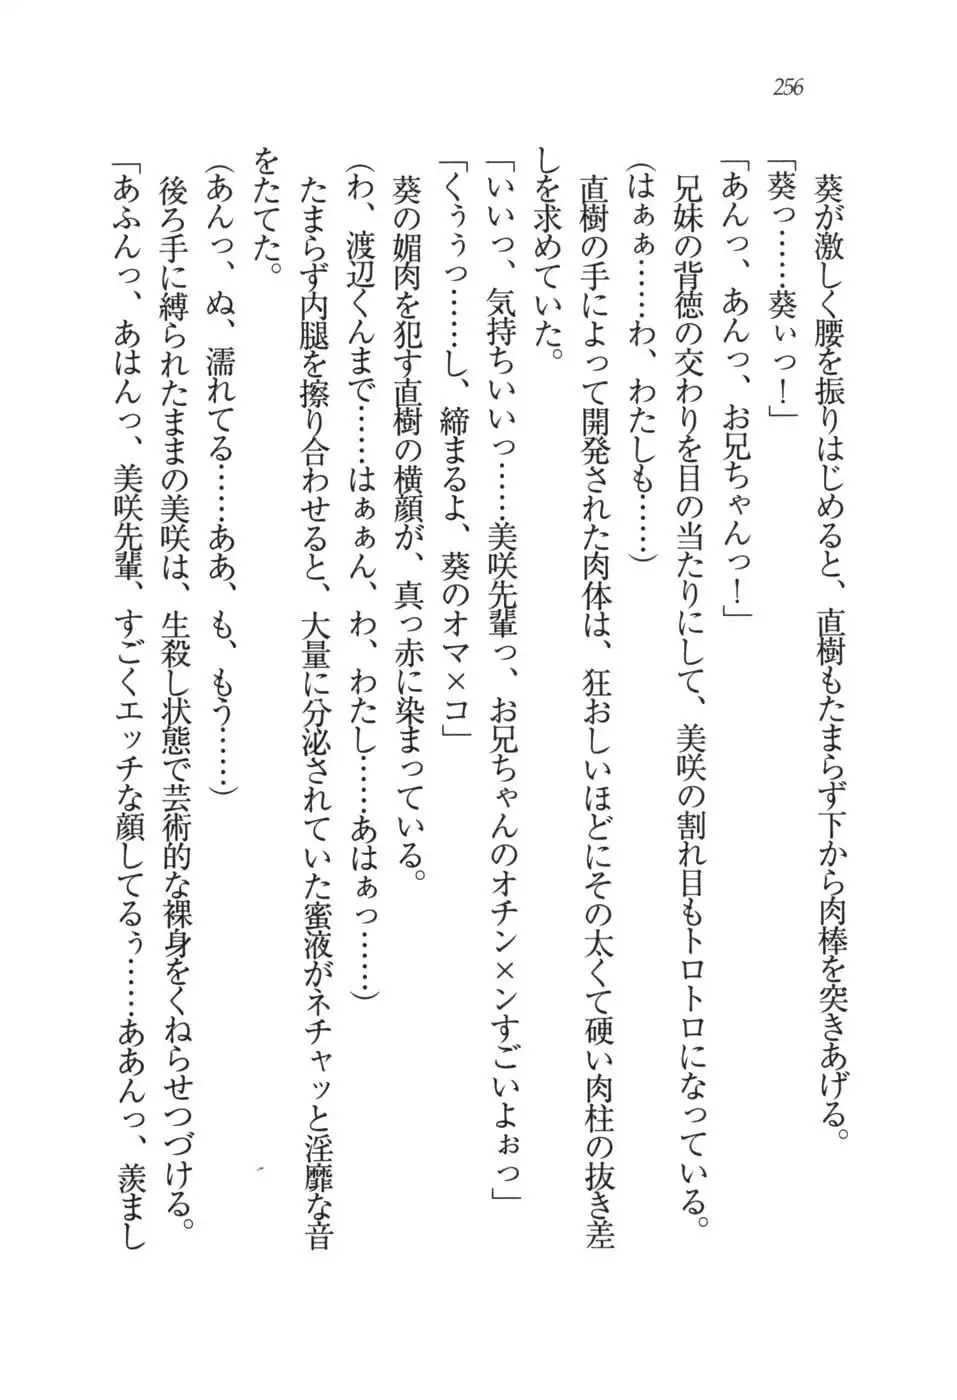 256
葵が激しく腰を振りはじめると、直樹もたまらず下から肉棒を突きあげる。
「葵っ……葵ぃっ！」
「あんっ、あんっ、お兄ちゃんっ！」
兄妹の背徳の交わりを目の当たりにして、美咲の割れ目もトロトロになっている。
(はぁぁ……わ、わたしも……)
直樹の手によって開発された肉体は、狂おしいほどにその太くて硬い肉柱の抜き差
しを求めていた。
「いいっ、気持ちいいっ……美咲先輩っ、お兄ちゃんのオチン×ンすごいよぉっ」
「くぅぅっ……し、締まるよ、葵のオマ×コ」
葵の媚肉を犯す直樹の横顔が、真っ赤に染まっている。
(わ、渡辺くんまで……はぁぁん、わ、わたし……あはぁっ……)
たまらず内腿を擦り合わせると、大量に分泌されていた蜜液がネチャッと淫靡な音
をたてた。
(あんっ、ぬ、濡れてる……ああ、も、もう……)
後ろ手に縛られたままの美咲は、生殺し状態で芸術的な裸身をくねらせつづける。
「あふんっ、あはんっ、美咲先輩、すごくエッチな顔してるぅ……ああんっ、羨まし